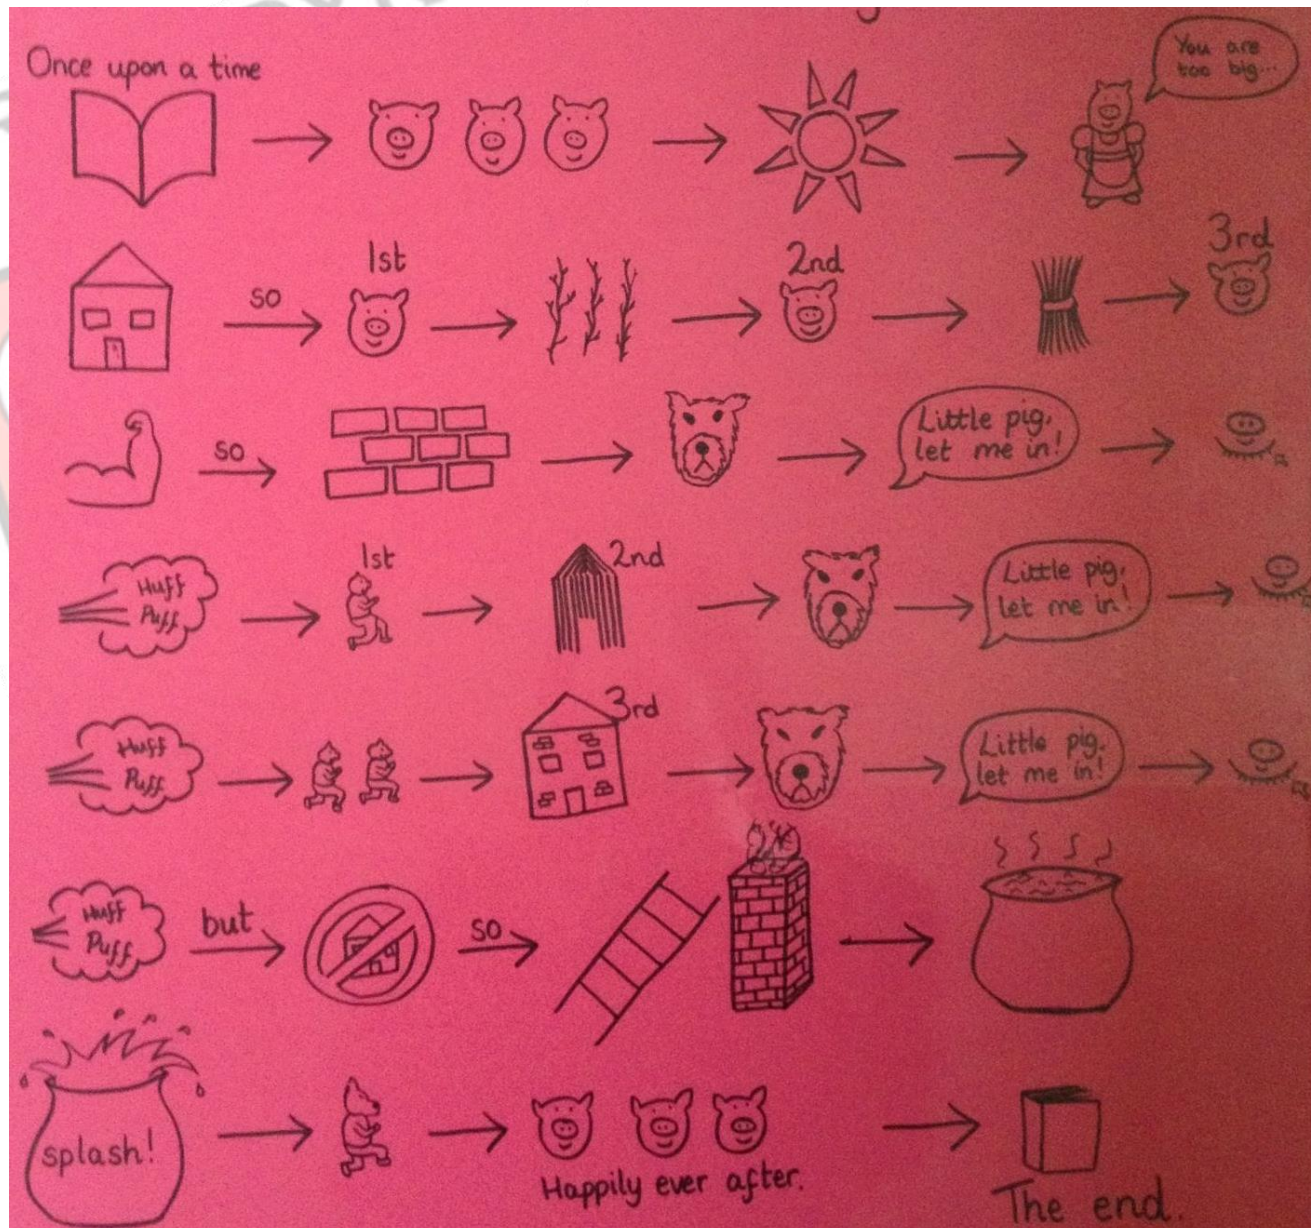 Once upon a time
You are
too big...
so
1st
2nd
3rd
so
Little pig,
let me in!
Huff
Puff
1st
2nd
Little pig,
let me in!
Huff
Puff
3rd
Little pig.
let me in!
Huff
Puff
but
so
splash!
Happily ever after.
The end.